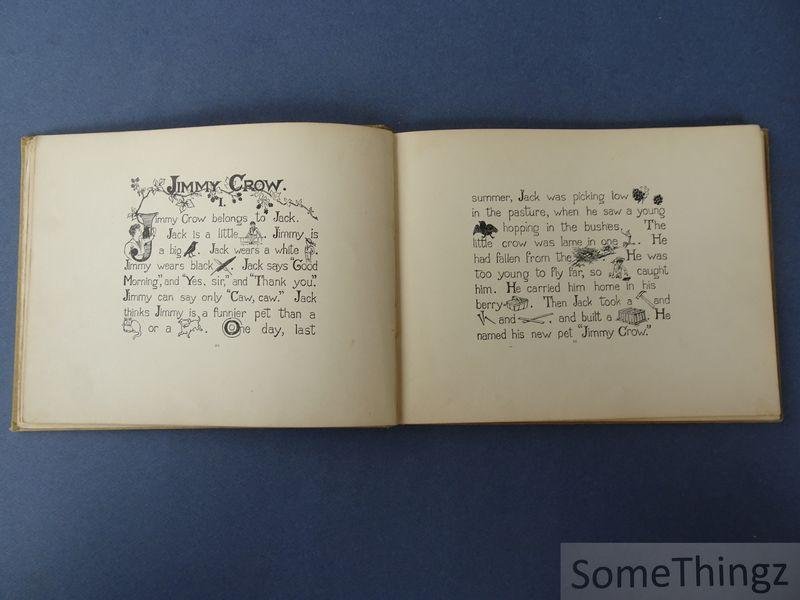 JIMMY CROW.
I.
Jimmy Crow belongs to Jack.
Jack is a little . Jimmy is
a big . Jack wears a white .
Jimmy wears black . Jack says "Good
Morning", and "Yes, sir," and "Thank you."
Jimmy can say only "Caw, caw." Jack
thinks Jimmy is a funnier pet than a
or a . One day, last
summer, Jack was picking low
in the pasture, when he saw a young
hopping in the bushes. The
little crow was lame in one . He
had fallen from the . He was
too young to fly far, so caught
him. He carried him home in his
berry . Then Jack took a and
and , and built a . He
named his new pet "Jimmy Crow."
SomeThingz